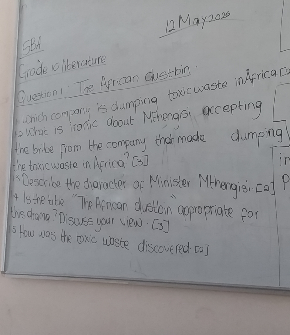 12 May 2025
SBA
Grade 10 literature
Question 1 The African dustbin
1 which company is dumping toxic waste in Africa [2
2 What is ironic about Mthengisi accepting
the bribe from the company that made dumping
the toxic waste in Africa? [3]
3 Describe the character of Minister Mthengisi. [2]
4 Is the title "The African dustbin" appropriate for
this drama? Discuss your view. [3]
5 How was the toxic waste discovered [2]